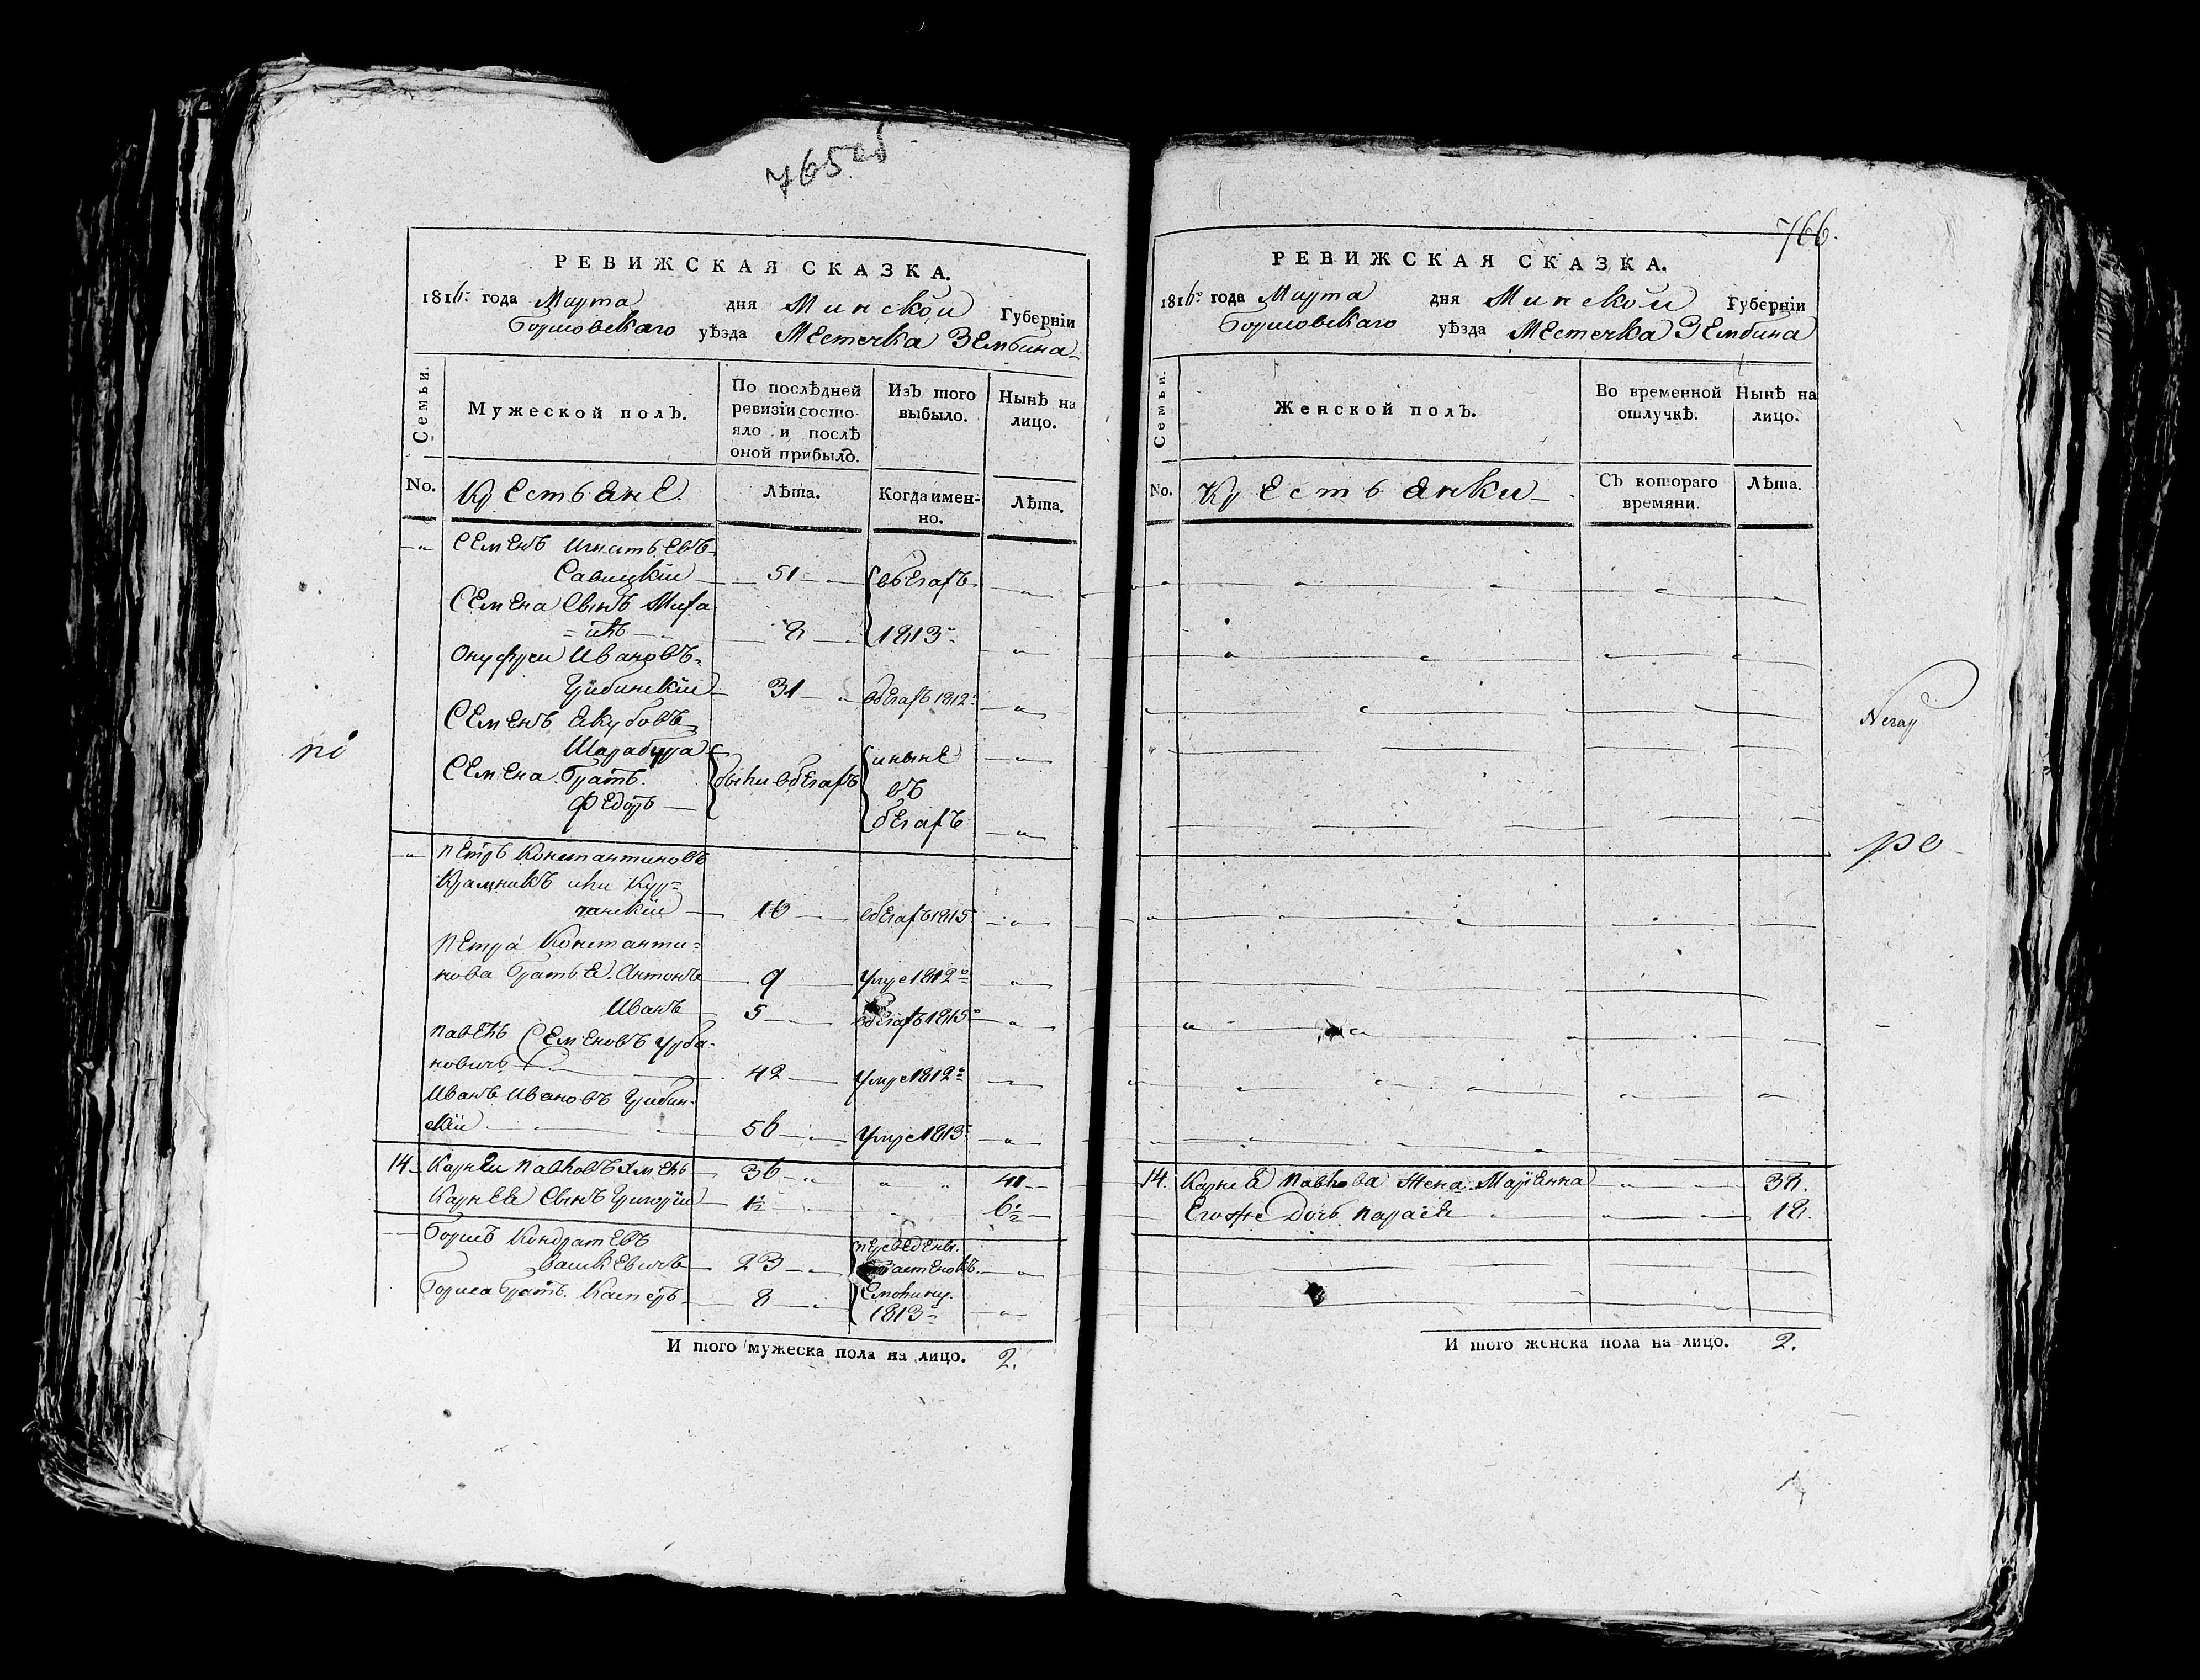 765 об
РЕВИЖСКАЯ СКАЗКА.
1816 года Марта дня Минской Губерніи
Борисовскаго уѣзда Местечка Зембина
Семьи.
Мужеской полъ.
По послѣдней ревизіи состояло и послѣ оной прибыло.
Изъ того выбыло.
Нынѣ на лицо.
No.
Крестьяне
Лѣта.
Когда именно.
Лѣта.
Семенъ Игнатьевъ
Савицкій 51 вбегахъ
Семена сынъ Миха
илъ 8 1813
Онуфрей Ивановъ
Грибинскій 31 вбегахъ 1812
Семенъ Якубовъ
Шарабура
Семена братъ
Федоръ
были вбегахъ
иныне
въ
бегахъ
Петръ Константиновъ
Крамникъ или Кур=
танскій 10 вбегахъ 1815
Петра Константи=
нова братья Антонъ 9 умре 1812
Иванъ 5 вбегахъ 1815
Павелъ Семеновъ Урба
новичъ 42 умре 1812
Иванъ Ивановъ Грибин
скій 56 умре 1813
14 Карней Павловъ Хмель 36 41
Карнея сынъ Григорій 1½ 6½
Борисъ Кондратевъ
Вашкевичъ 23
Бориса братъ Касперъ 8
переведены
1813
И того мужеска пола на лицо. 2.
766.
РЕВИЖСКАЯ СКАЗКА.
1816 года Марта дня Минской Губерніи
Борисовскаго уѣзда Местечка Зембина
Семьи.
Женской полъ.
Во временной отлучкѣ.
Нынѣ на лицо.
No.
Крестьянки
Съ котораго времяни.
Лѣта.
14. Карнея Павлова жена Марьянна 38.
Егоже дочь Парася 18.
И того женска пола на лицо. 2.
по
ро